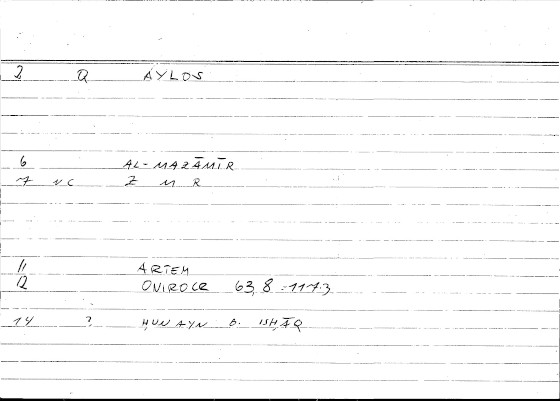 2 Q AYLOS
6 AL-MAZĀMĪR
7 NC Z M R
11 ARTEM
12 ONIROCR 63,8 :1173
14 ? ḤUNAYN B. ISḤĀQ